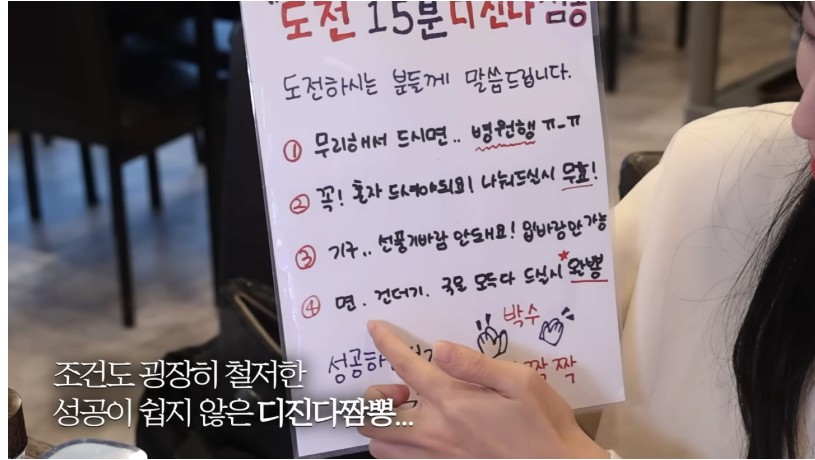 "도전 15분 디진다짬뽕
도전하시는 분들께 말씀드립니다.
① 무리해서 드시면.. 병원행 ㅠ-ㅠ
② 꼭! 혼자 드셔야되요! 나눠드실시 무효!
③ 기구.. 선풍기바람 안돼요! 입바람만 가능
④ 면. 건더기. 국물 모두다 드실시 ★완뽕
박수
성공하
짝 짝
조건도 굉장히 철저한
성공이 쉽지 않은 디진다짬뽕...